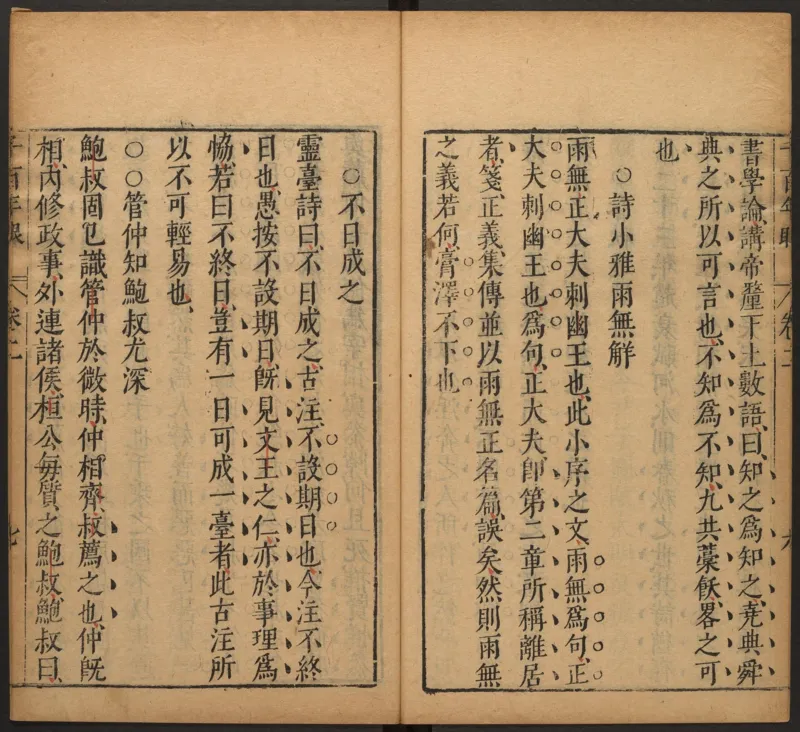 書學論講帝釐下土數語曰知之爲知之堯典舜
典之所以可言也不知爲不知九共藁飫畧之可
也
○詩小雅雨無解
雨無正大夫刺幽王也此小序之文雨無爲句正
大夫刺幽王也爲句正大夫卽第二章所稱離居
者箋正義集傳並以雨無正名篇誤矣然則雨無
之義若何膏澤不下也
○不日成之
靈臺詩曰不日成之古注不設期日也今注不終
日也愚按不設期日旣見文王之仁亦於事理爲
恊若曰不終日豈有一日可成一臺者此古注所
以不可輕易也
○○管仲知鮑叔尤深
鮑叔固已識管仲於微時仲相齊叔薦之也仲旣
相內修政事外連諸侯桓公每質之鮑叔鮑叔曰
千百年眼 卷二 七